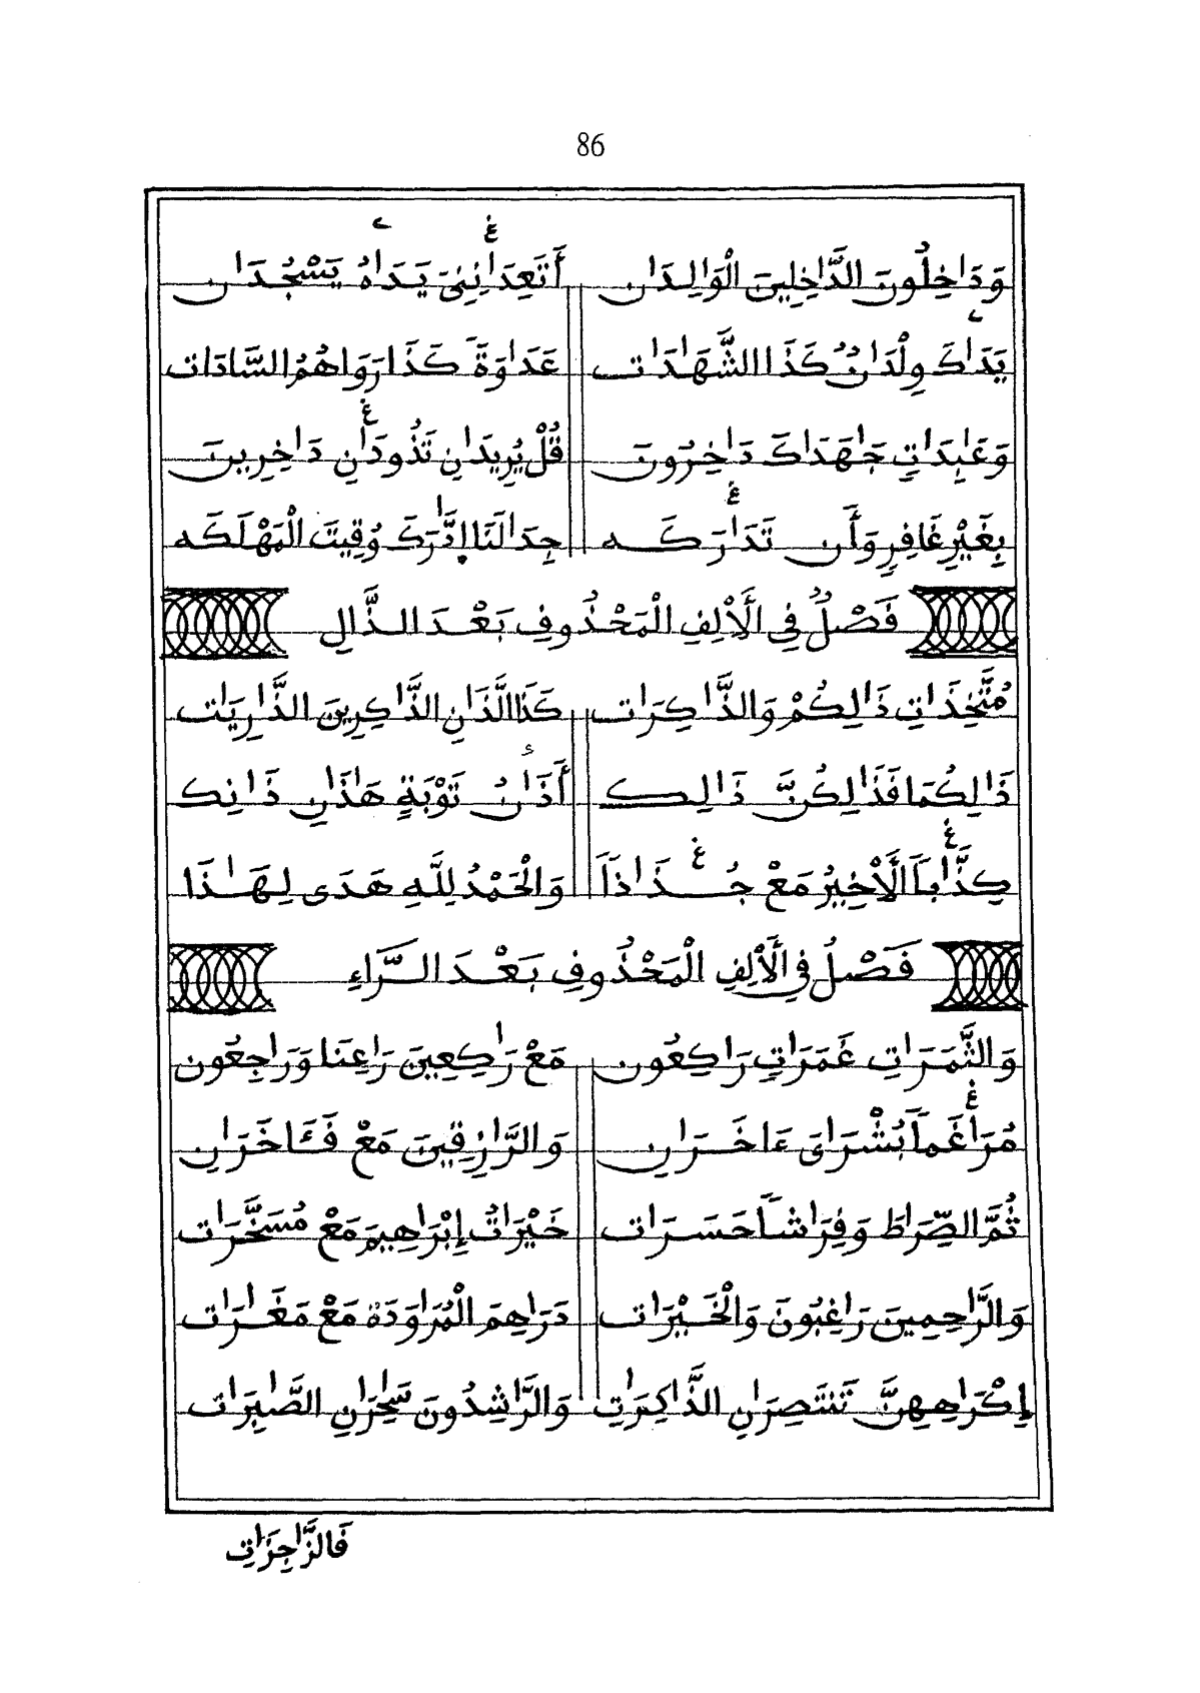 86
وَدَاخِلُونَ الدَّاخِلِينَ الْوَالِدَان أَتَعِدَانِنِى يَدَاهُ يَسْجُدَان
يَدَاكَ وِلْدَانٌ كَذَا الشَّهَادَات عَدَاوَةَ كَذَا رَوَاهُمُ السَّادَات
وَعَابِدَاتٍ جَاهَدَاكَ دَاخِرُونَ قُلْ يُرِيدَانِ تَذُودَانِ دَاخِرِينَ
بِغَيْرِ غَافِرٍ وَأَن تَدَارَكَه جِدَالَنَا ادَّارَكَ وُقِيتَ الْمَهْلَكَه
فَصْلٌ فِي الَْأَلِفِ الْمَحْذُوفِ بَعْدَ الذَّالِ
مُتَّخِذَاتِ ذَالِكُمْ وَالذَّاكِرَات كَذَا الَّذَانِ الذَّاكِرِينَ الذَّارِيَات
ذَالِكُمَا فَذَالِكُنَّ ذَالِك أَذَانٌ تَوْبَةٍ هَاذَانِ ذَانِك
كِذَّاباً الَْأَخِيرُ مَعْ جُذَاذاً وَالْحَمْدُ لِلَّهِ هَدَى لِهَاذَا
فَصْلٌ فِي الَْأَلِفِ الْمَحْذُوفِ بَعْدَ الرَّاءِ
وَالثَّمَرَاتِ غَمَرَاتِ رَاكِعُون مَعْ رَاكِعِينَ رَاعِنَا وَرَاجِعُون
مُرَاغَماً بُشْرَاىَ ءَاخَرَانِ وَالرَّازِقِينَ مَعْ فَـَٔاخَرَانِ
ثُمَّ الصِّرَاطَ وَفِرَاشاً حَسَرَات خَيْرَاتٌ إِبْرَاهِيمَ مَعْ مُسَخَّرَات
وَالرَّاحِمِينَ رَاغِبُونَ وَالْخَيْرَات دَرَاهِمَ الْمُرَاوَدَة مَعْ مَغَارَات
إِكْرَاهِهِنَّ تَنتَصِرَانِ الذَّاكِرَاتِ وَالرَّاشِدُونَ سَاحِرَانِ الصَّابِرَات
فَالزَّاجِرَاتِ